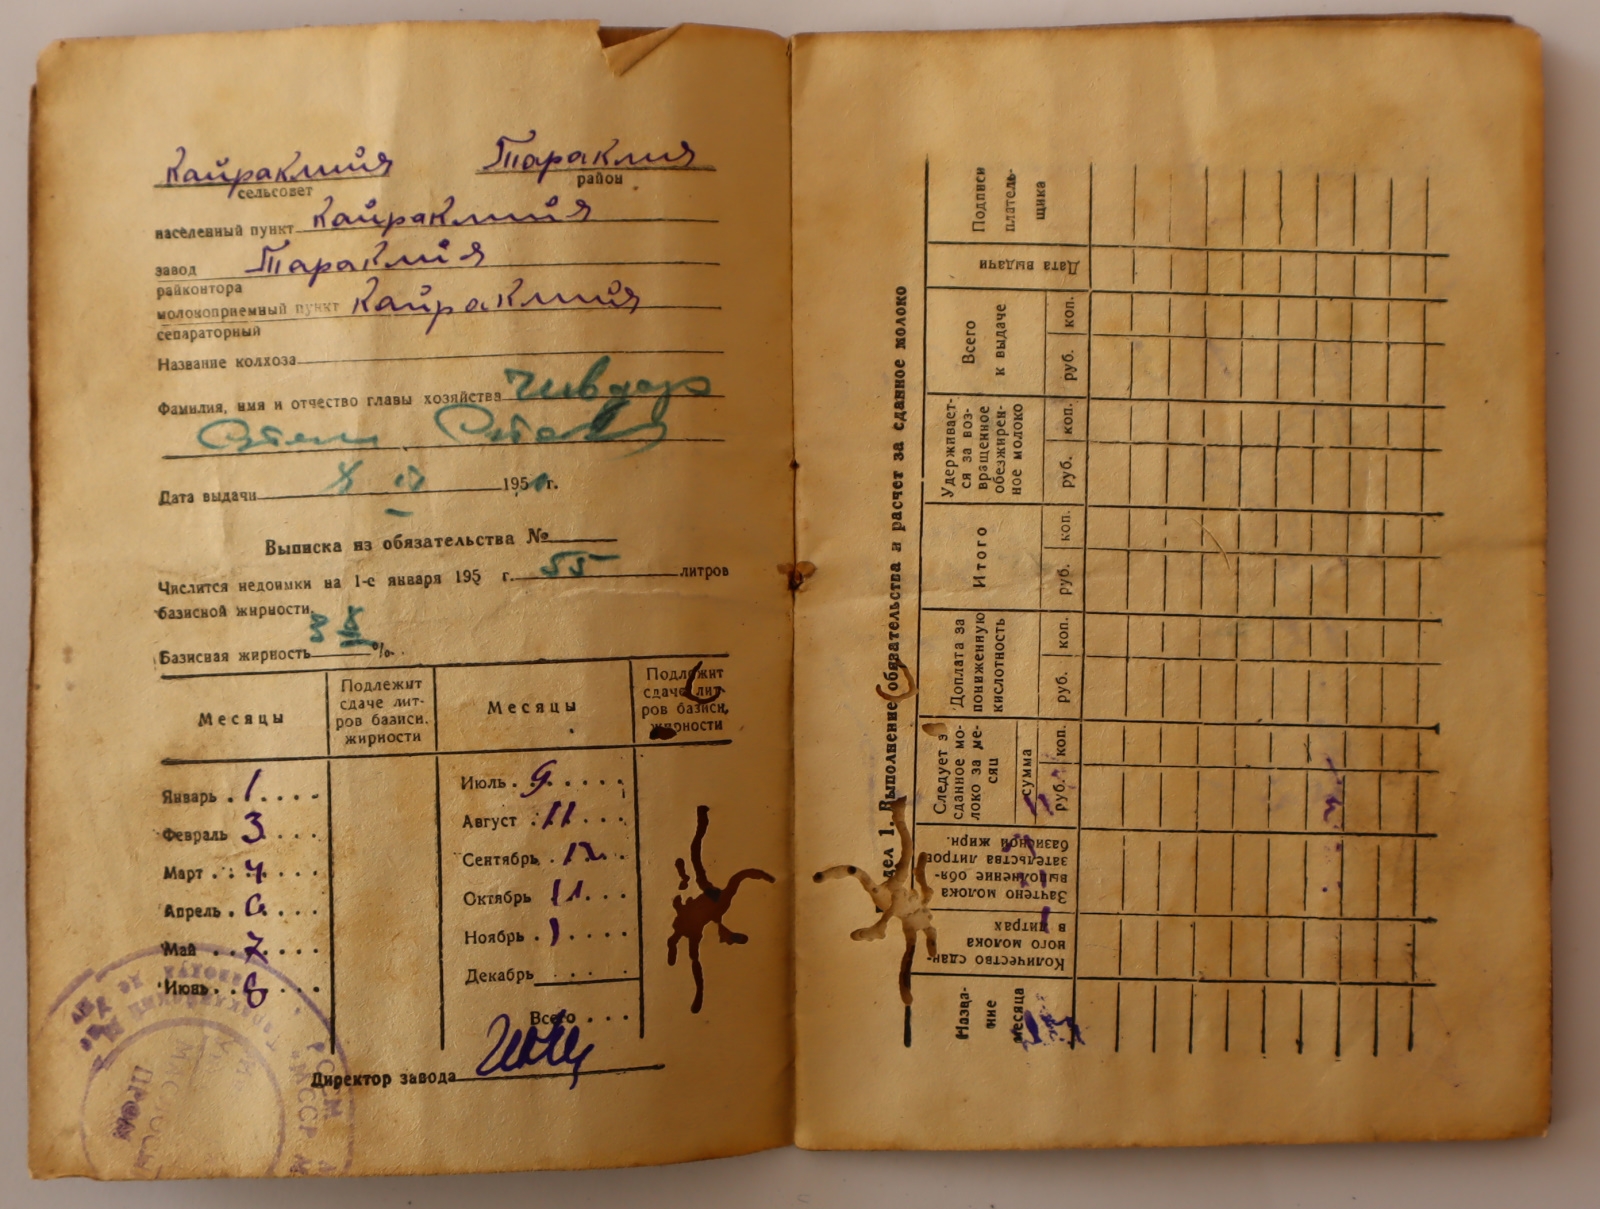 Кайраклия Тараклия
сельсовет район
населенный пункт Кайраклия
завод Тараклия
райконтора
молокоприемный пункт Кайраклия
сепараторный
Название колхоза
Фамилия, имя и отчество главы хозяйства Чивдар
Дата выдачи 195 г.
Выписка из обязательства №
Числится недоимки на 1-е января 195 г. 55 литров
базисной жирности.
Базисная жирность %.
Месяцы Подлежит сдаче литров базисн. жирности Месяцы Подлежит сдаче литров базисн. жирности
Январь . 1 . . . . Июль . 9 . . . .
Февраль 3 . . . Август . 11 . . .
Март . . 4 . . . Сентябрь . 12 . .
Апрель . 6 . . . Октябрь 11 . . .
Май . . 7 . . . Ноябрь . 1 . . . .
Июнь . . 8 . . . Декарбь . . . .
Всего . . .
Директор завода
РССМ
МССР
дел 1. Выполнение обязательства и расчет за сданное молоко
Название месяца
Количество сданного молока в литрах
Зачтено молока выполнение обязательства литров базисной жирн.
Следует з сданное молоко за месяц
сумма
руб. коп.
Доплата за пониженную кислотность
руб. коп.
Итого
руб. коп.
Удерживается за возвращенное обезжиренное молоко
руб. коп.
Всего к выдаче
руб. коп.
Дата выдачи
Подписи плательщика